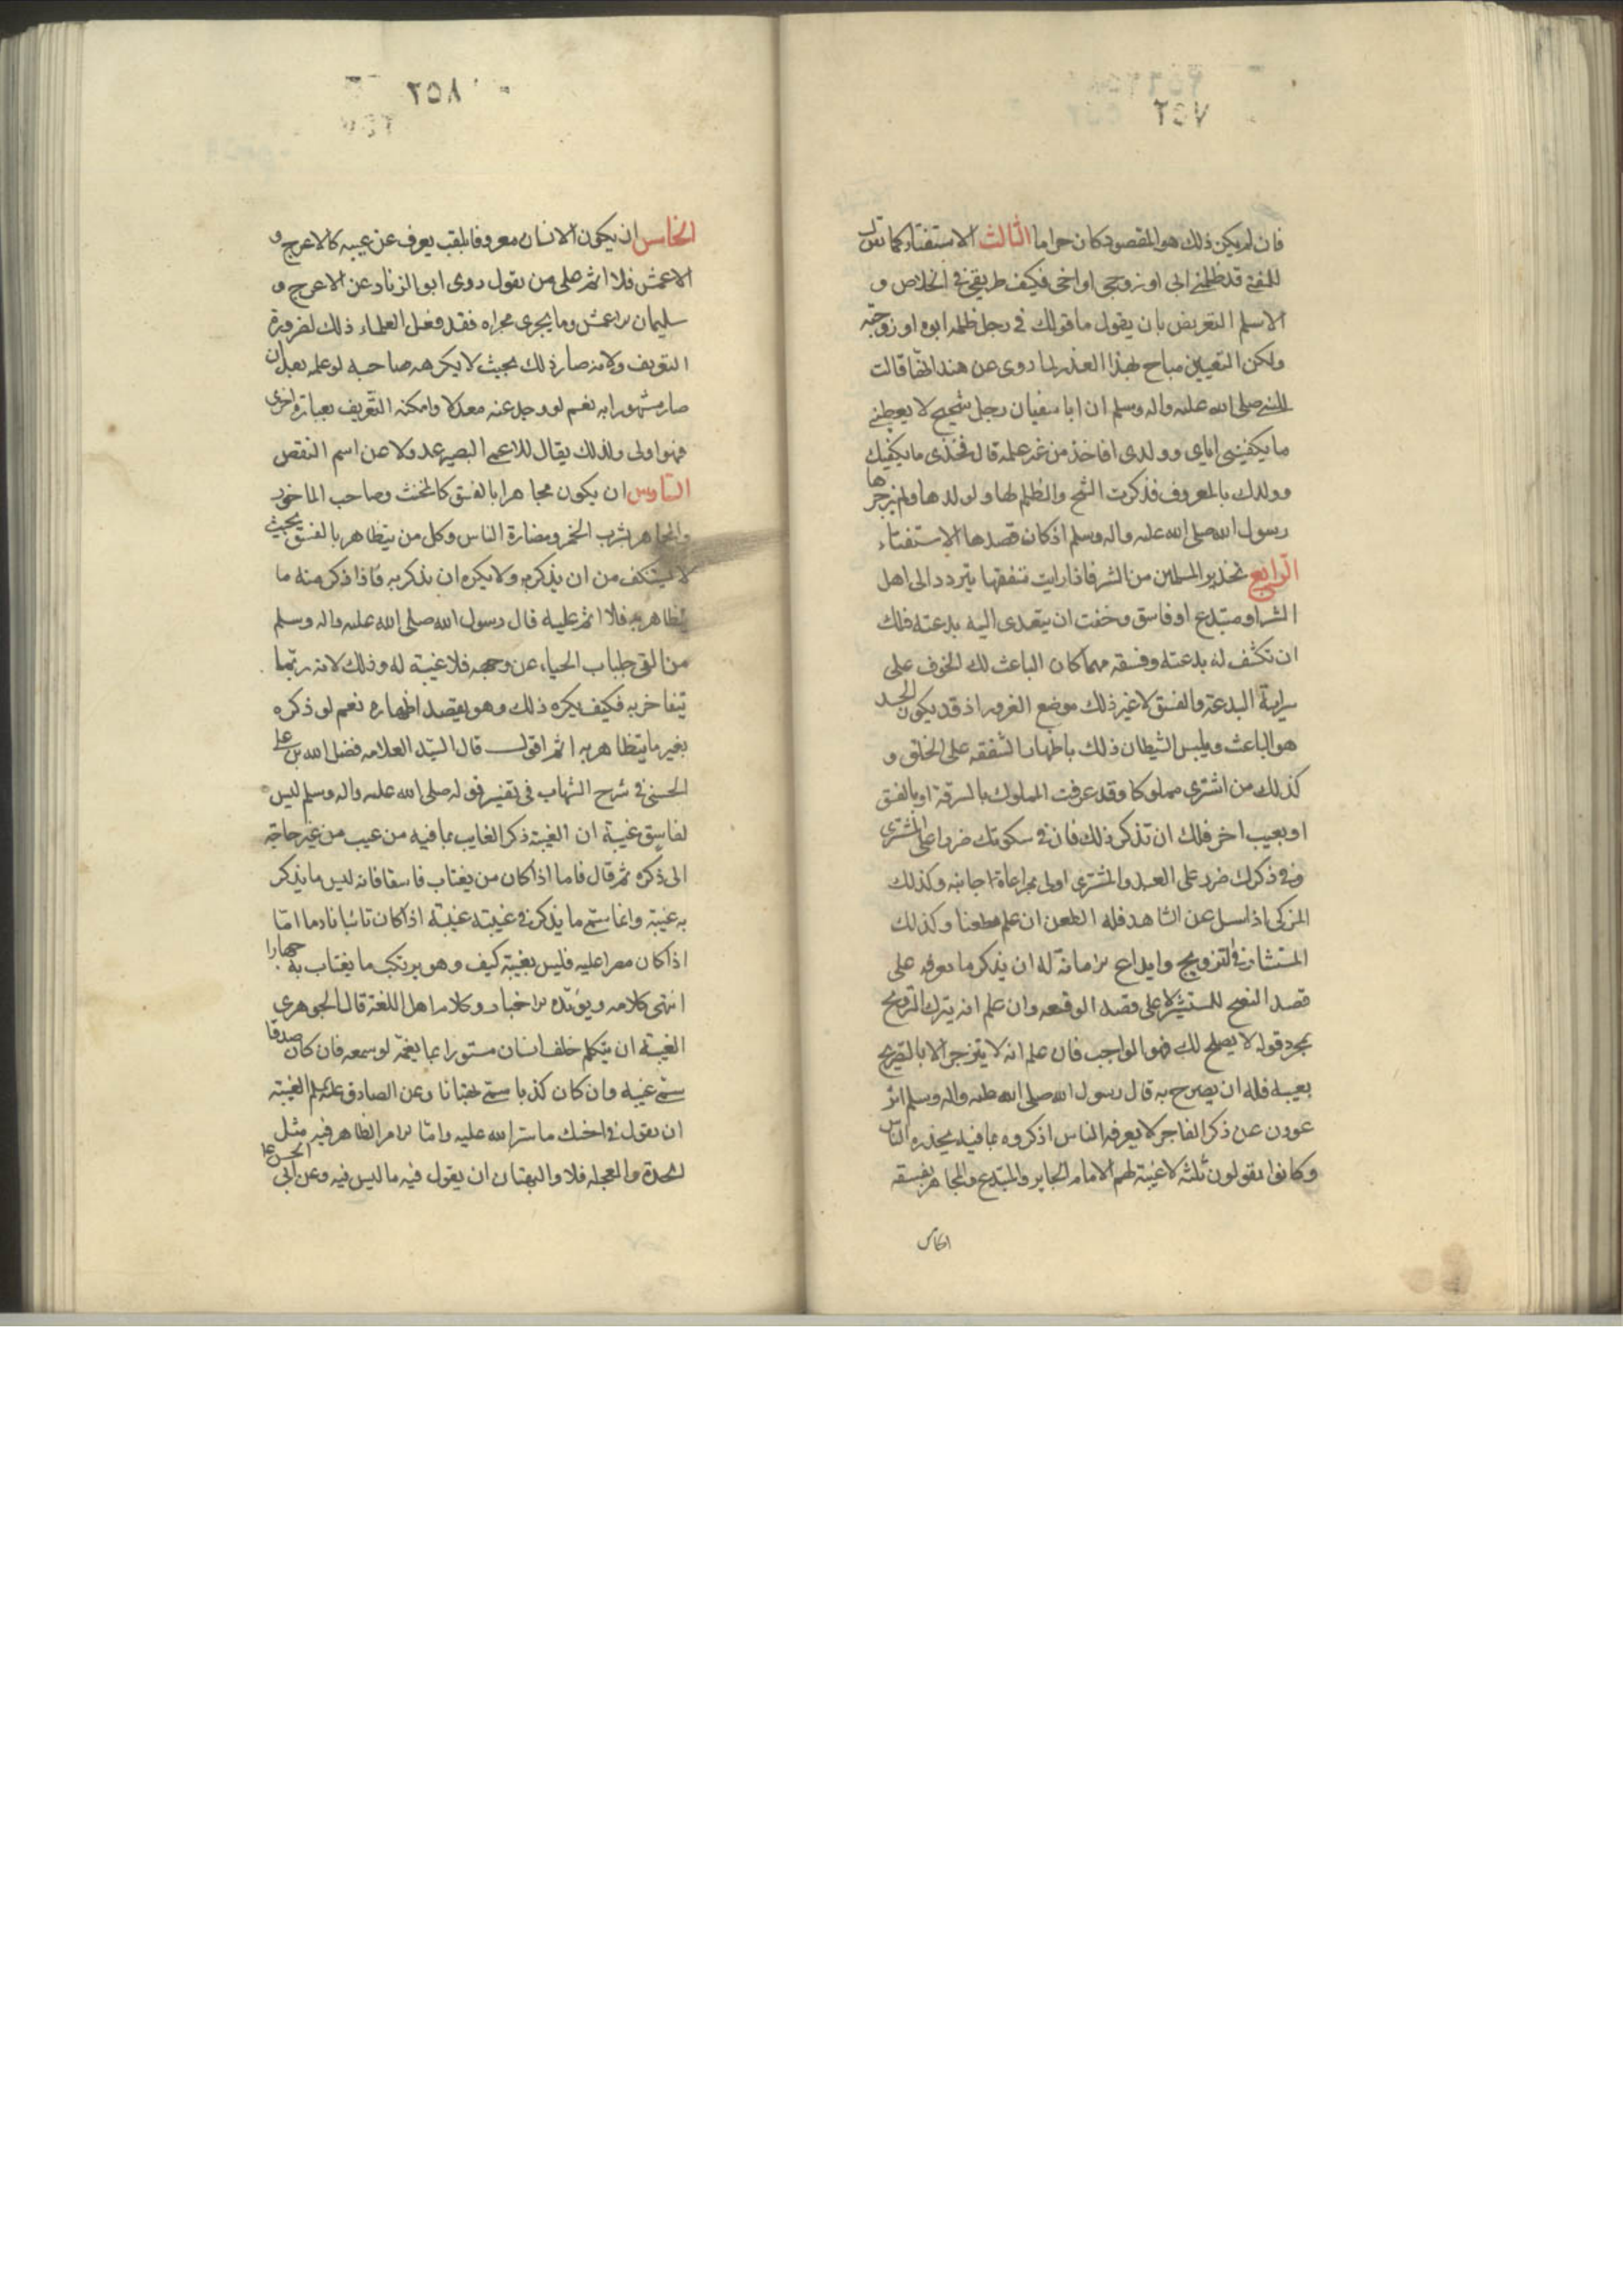 ٢٥٧
فان لم يكن ذلك هو المقصود كان حراما الثالث الاستفتاء كما تقول
للمفتى قد ظلمنى ابى او زوجتى او اخى فكيف طريقى فى الخلاص و
الاسلم التعريض بان يقول ما قولك فى رجل ظلمه ابوه او زوجته
ولكن التعيين مباح لهذا العذر لما روى عن هند انها قالت
للنبى صلى الله عليه واله وسلم ان ابا سفيان رجل شحيح لا يعطينى
ما يكفينى اياى وولدى افاخذ من غير علمه قال فخذى ما يكفيك
وولدك بالمعروف فذكرت الشح والظلم لها ولولدها ولم يزجرها
رسول الله صلى الله عليه واله وسلم اذ كان قصدها الاستفتاء
الرابع تحذير المسلمين من الشر فاذا رايت متفقها يتردد الى اهل
الشر او مبتدع او فاسق وخفت ان يتعدى اليه بدعته فلك
ان تكشف له بدعته وفسقه مهما كان الباعث لك الخوف على
سراية البدعة والفسق لا غير ذلك موضع الغرور اذ قد يكون الحسد
هو الباعث ويلبس الشيطان ذلك باظهار الشفقه على الخلق و
كذلك من اشترى مملوكا وقد عرفت المملوك بالسرقة او بالفسق
او بعيب اخر فلك ان تذكر ذلك فان فى سكوتك ضررا على المشترى
وفى ذكرك ضرر على العبد والمشترى اولى بمراعاة جانبه وكذلك
المزكى اذا سئل عن الشاهد فله الطعن ان علم مطعنا وكذلك
المستشار فى التزويج وايداع الامانة له ان يذكر ما يعرفه على
قصد النصح للمستشير لا على قصد الوقيعه وان علم انه يترك التزويج
بمجرد قوله لا يصلح لك فهو الواجب فان علم انه لا ينزجر الا بالتصريح
بعيبه فله ان يصرح به قال رسول الله صلى الله عليه واله وسلم اتر
عوون عن ذكر الفاجر لا يعرفه الناس اذكروه بما فيه يحذره الناس
وكانوا يقولون ثلثه لا غيبة لهم الامام الجاير والمبتدع والمجاهر بفسقه
الخامس
٢٥٨
الخامس ان يكون الانسان معروفا بلقب يعرف عن عيبه كالاعرج و
الاعمش فلا اثم على من يقول روى ابو الزناد عن الاعرج و
سليمان الاعمش وما يجرى مجراه فقد فعل العلماء ذلك لضرورة
التعريف ولانه صار ذلك بحيث لا يكرهه صاحبه لو علمه بعد ان
صار مشهورا به نعم لو وجد عنه معدلا وامكنه التعريف بعبارة اخرى
فهو اولى ولذلك يقال للاعمى البصير عدولا عن اسم النقص
السادس ان يكون مجاهرا بالفسق كالمخنث وصاحب الماخور
والمجاهر بشرب الخمر ومضارة الناس وكل من يتظاهر بالفسق بحيث
لا يستنكف من ان يذكر به ولا يكره ان يذكر به فاذا ذكر منه ما
يتظاهر به فلا اثم عليه قال رسول الله صلى الله عليه واله وسلم
من القى جلباب الحياء عن وجهه فلا غيبة له وذلك لانه ربما
يتفاخر به فكيف يكره ذلك وهو يقصد اظهاره نعم لو ذكره
بغير ما يتظاهر به اثم اقول قال السيد العلامه فضل الله بن على
الحسنى فى شرح الشهاب فى تفسير قوله صلى الله عليه واله وسلم ليس
لفاسق غيبة ان الغيبة ذكر الغايب بما فيه من عيب من غير حاجة
الى ذكره ثم قال فاما اذا كان من يغتاب فاسقا فانه ليس ما يذكر
به غيبة وانما سمى ما يذكر فى غيبته غيبة اذا كان تائبا نادما اما
اذا كان مصرا عليه فليس بغيبة كيف وهو يرتكب ما يغتاب به جهارا
انتهى كلامه ويؤيده الاخبار وكلام اهل اللغة قال الجوهرى
الغيبة ان يتكلم خلف انسان مستور بما يغمه لو سمعه فان كان صدقا
سمى غيبة وان كان كذبا سمى بهتانا وعن الصادق عليه السلم الغيبة
ان يقول فى اخيك ما ستر الله عليه واما الامر الظاهر فيه مثل
الحدة والعجلة فلا والبهتان ان يقول فيه ما ليس فيه وعن ابى الحسن ع